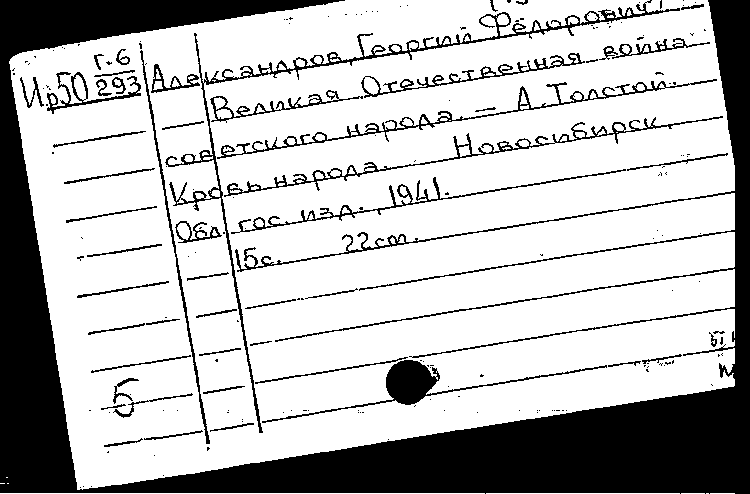 Г.6
Ир50 293 Александров, Георгий Фёдорович.
Великая Отечественная война
советского народа. — А. Толстой.
Кровь народа. Новосибирск,
Обл. гос. изд., 1941.
15с. 22см.
5